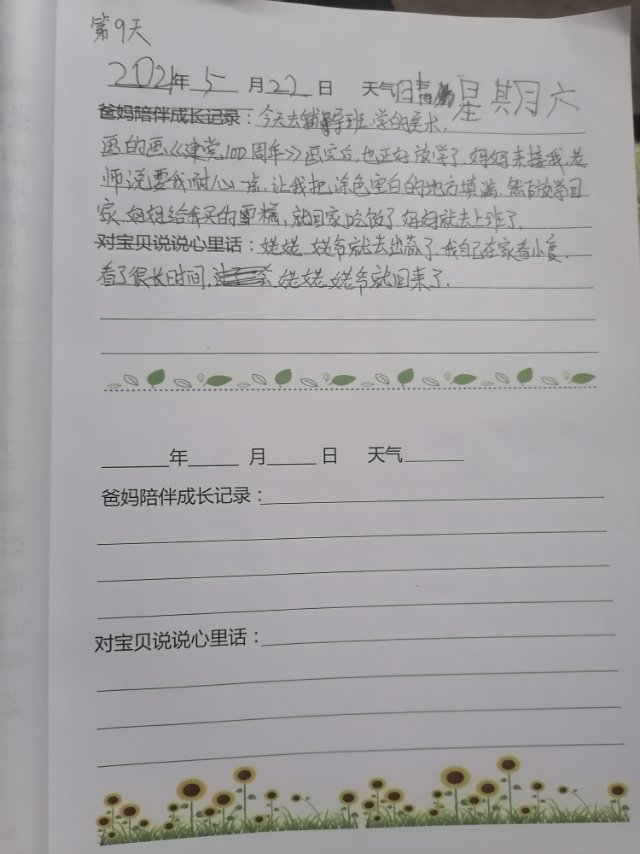 第9天
2021年5月22日 天气 晴 星期六
爸妈陪伴成长记录：今天去辅导班学的美术,
画的画《建党100周年》画完后,也正好放学了,妈妈来接我,老
师说要我耐心一点,让我把涂色空白的地方填满.然后放学回
家,妈妈给我买的雪糕,就回家吃饭了,妈妈就去上班了.
对宝贝说说心里话：姥姥、姥爷就去出蒜了,我自己在家看小度.
看了很长时间, 姥姥、姥爷就回来了.
年 月 日 天气
爸妈陪伴成长记录：
对宝贝说说心里话：